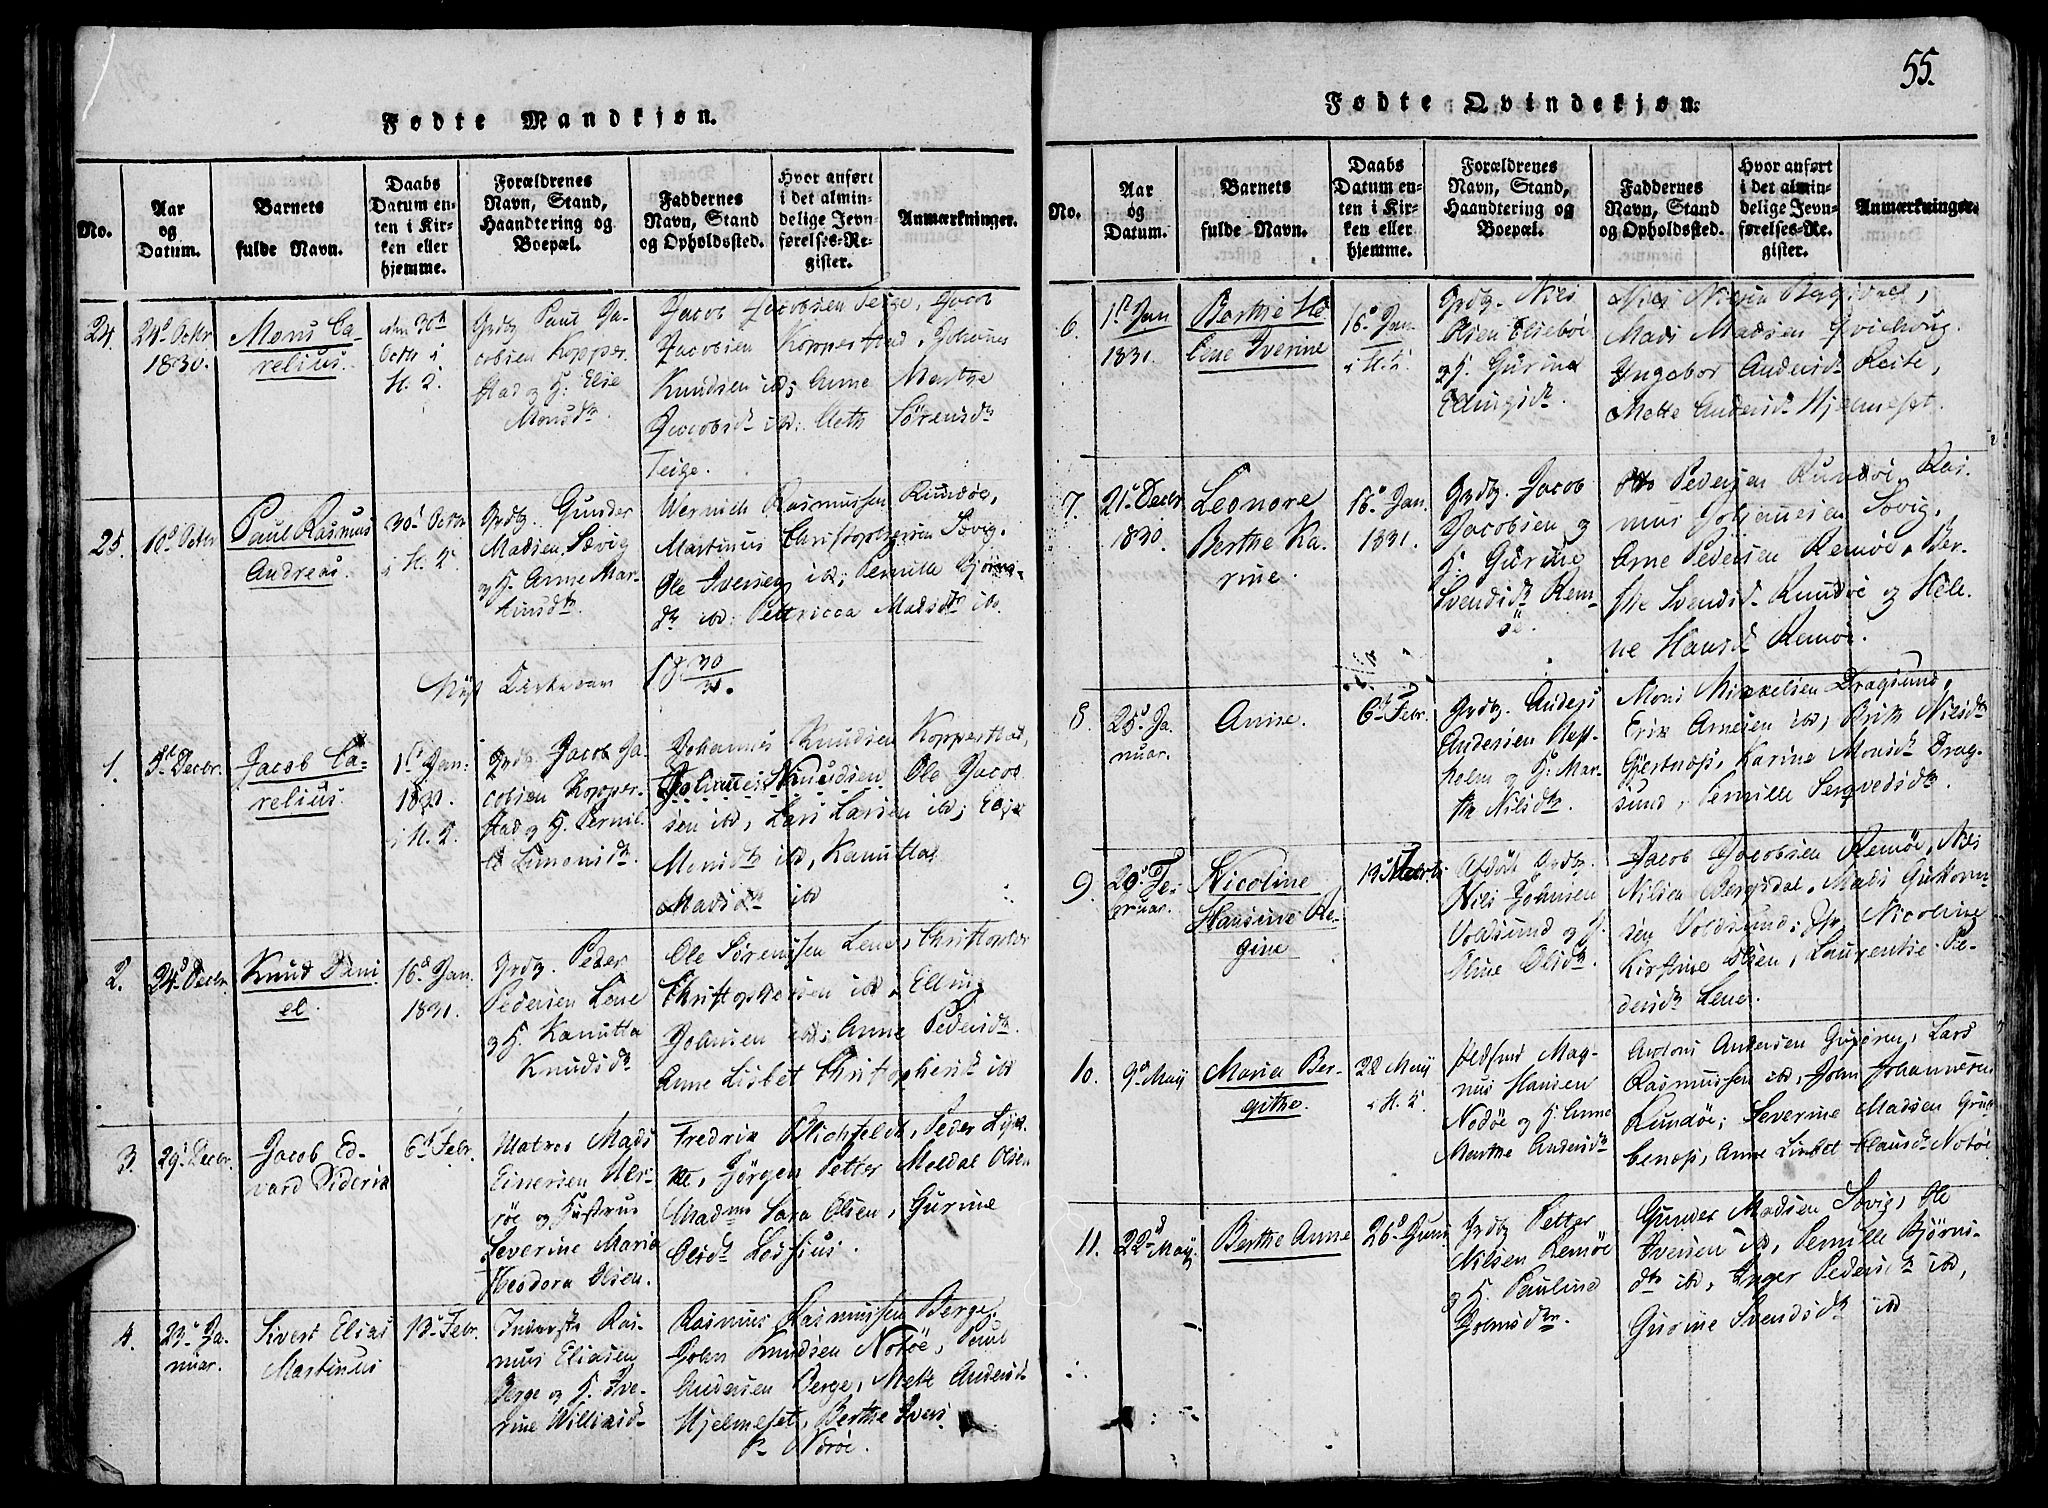 55.
Fødte Mandkjøn.
No.
Aar og Datum.
Barnets fulde Navn.
Daabs Datum enten i Kirken eller hjemme.
Forældrenes Navn, Stand, Haandtering og Boepæl.
Faddernes Navn, Stand og Opholdssted.
Hvor anført i det almindelige Jevnførelses-Register.
Anmærkninger.
24.
24d Octbr
1830.
Mons Ca-
relius.
den 30te
Octbr i
H. K.
Grdb. Paul Ja-
cobsen Kopper-
stad og H. Elsie
Monsdtr
Jacob Jacobsen Teige, Jacob
Jacobsen Kopperstad, Johannes
Knudsen ibd; Anne Marthe
Jacobsdtr ibd; Meth Sørensdtr
Teige.
25.
10d Octbr
Paul Rasmus
Andreas.
30d Octbr
i H. K.
Grdb. Gunder
Madsen Søvig
og H. Anne Mar-
tinusdtr.
Wernich Rasmussen Rundøe,
Martinus Christophersen Søvig.
Ole Iversen ibd; Pernille Bjørns-
dtr ibd; Pettricca Madsdtr ibd.
Nyt Kirkeaar 18 30/31.
1.
5d Decbr.
Jacob Ca-
relius.
1ste Jan:
1831.
i H. K.
Grdb. Jacob Ja-
cobsen Kopper-
stad og H. Pernil-
le Simonsdtr.
Johannes Knudsen Kopperstad,
Johannes Knudsen Ole Jacob-
sen ibd, Lars Larsen ibd; Elsje
Monsdtr ibd, Kanutta
Madsdtr ibd
2.
24d Decbr.
Knud Dani-
el.
16d Jan.
1831.
Grdb. Peder
Pedersen Lene
og H. Kanutta
Knudsdtr
Ole Sørensen Lene, Christopher
Christophersen ibd, Elling
Johnsen ibd; Anne Pedersdtr.
Anne Lisbet Christophersdtr ibd
3.
29d Decbr.
Jacob Ed-
vard Diderik
6d Febr.
Matros Mads
Einersen Her-
røe og Hustrue
Severine Maria
Theodora Olsen.
Fredrik Blichfeldt, Peder Lyk-
ke, Jørgen Petter Moldal Olsen
Madme Sara Olsen, Gurine
Olsdtr Lossius.
4.
23d Ja-
nuar.
Sivert Elias
Martinus
13d Febr.
Inderste Ras-
mus Eliasen
Berge og H. Ive-
rine Willixsd
Rasmus Rasmussen Berge,
John Knudsen Notøe, Poul
Andersen Berge, Mete Andersd
Hjelmeset, Berthe Ivers
Norøe.
Fødte Qvindekjøn.
No.
Aar og Datum.
Barnets fulde Navn.
Daabs Datum enten i Kirken eller hjemme.
Forældrenes Navn, Stand, Haandtering og Boepæl.
Faddernes Navn, Stand og Opholdssted.
Hvor anført i det almindelige Jevnførelses-Register.
Anmærkninger.
6.
1ste Jan
1831.
Berthe He-
line Iverine
16d Jan
i H. K.
Grdb. Niels
Olsen Eliebøe
og H. Gurine
Ellingsdtr.
Niels Nilsen Bergsdal,
Mads Madsen
Ingebor Andersdtr Reite,
Mette Andersdtr Hjelmeset.
7.
21d Decbr
1830.
Leonore
Berthe Ka-
rine.
16d Jan.
1831.
Grdb. Jacob
Jacobsen og
H. Gurine
Svendsdtr Rem-
øe.
Otto Pedersen Rundøe, Ras-
mus Johannesen Søvig,
Arne Pedersen Remøe, Ber-
the Svendsd Rundøe og Hele-
ne Hansd Remøe.
8
25d Ja-
nuar.
Anne.
6d Febr.
Grdb. Anders
Andersen Nest-
holm og H. Mar-
the Nilsdtr.
Mons Mikkelsen Dragsund,
Erik Arnesen ibd, Brite Nilsdtr
Gjertnæs, Karine Monsdtr Drag-
sund, Pernille Servedsdtr.
9.
20d Fe-
bruar.
Nicoline
Hansine Re-
gine
13d Marts
Afdøde Grdb.
Nils Johnsen
Voldsund og H.
Oline Olsdtr
Jacob Jacobsen Remøe, Nils
Nilsen Bergsdal, Mads Guttorm-
sen Voldsund; Nicoline
Kirstine Olsen, Laurentse Pe-
dersdtr Lene.
10.
9d May
Maria Ber-
githe.
28 May
i H. K.
Magnus Hansen
Notøe og H. Anne
Marthe Andersdtr
Antoni Andersen Gurøren, Lars
Rasmussen ibd, John Johannesen
Rundøe; Severine Madsen Grub-
benæs, Anne Lisbet Hansdtr Notøe
11.
22d May
Berthe Anne
26d Juni
Grdb. Petter
Nilsen Remøe
og H. Pauline
Johnsdtr.
Gunder Madsen Søvig, Ole
Iversen ibd, Pernille Bjørns-
dtr ibd, Inger Pedersdtr ibd,
Gurine Svendsdtr ibd